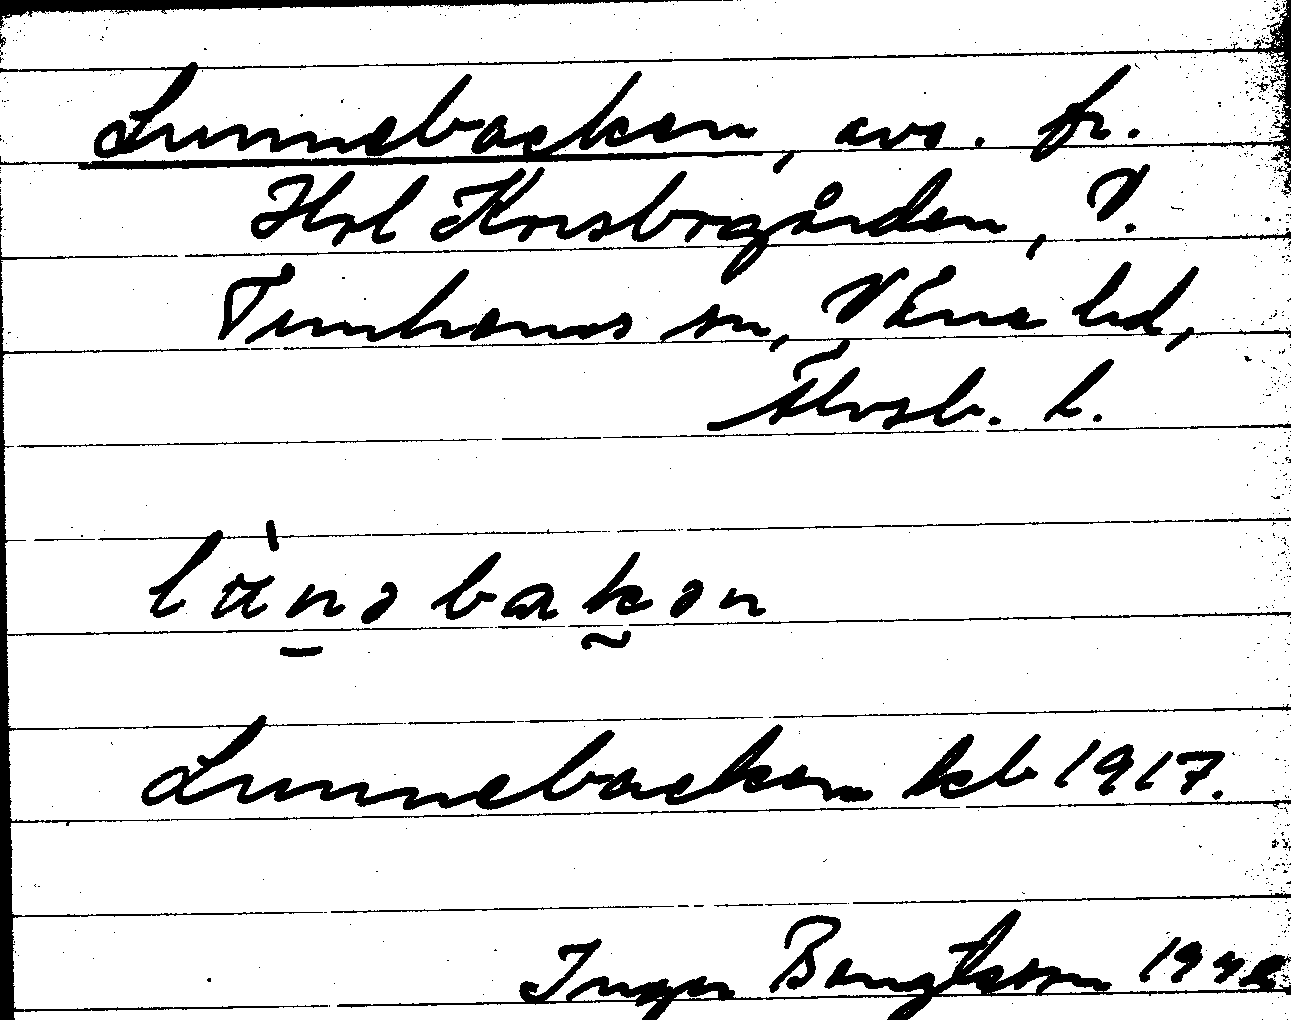 Lunnebacken, avs. fr.
Hrl Korsbogården, V.
Tunhems sn, Väne hd,
Älvsb. l.
Lunnebacken kb 1917.
Inger Bengtsson